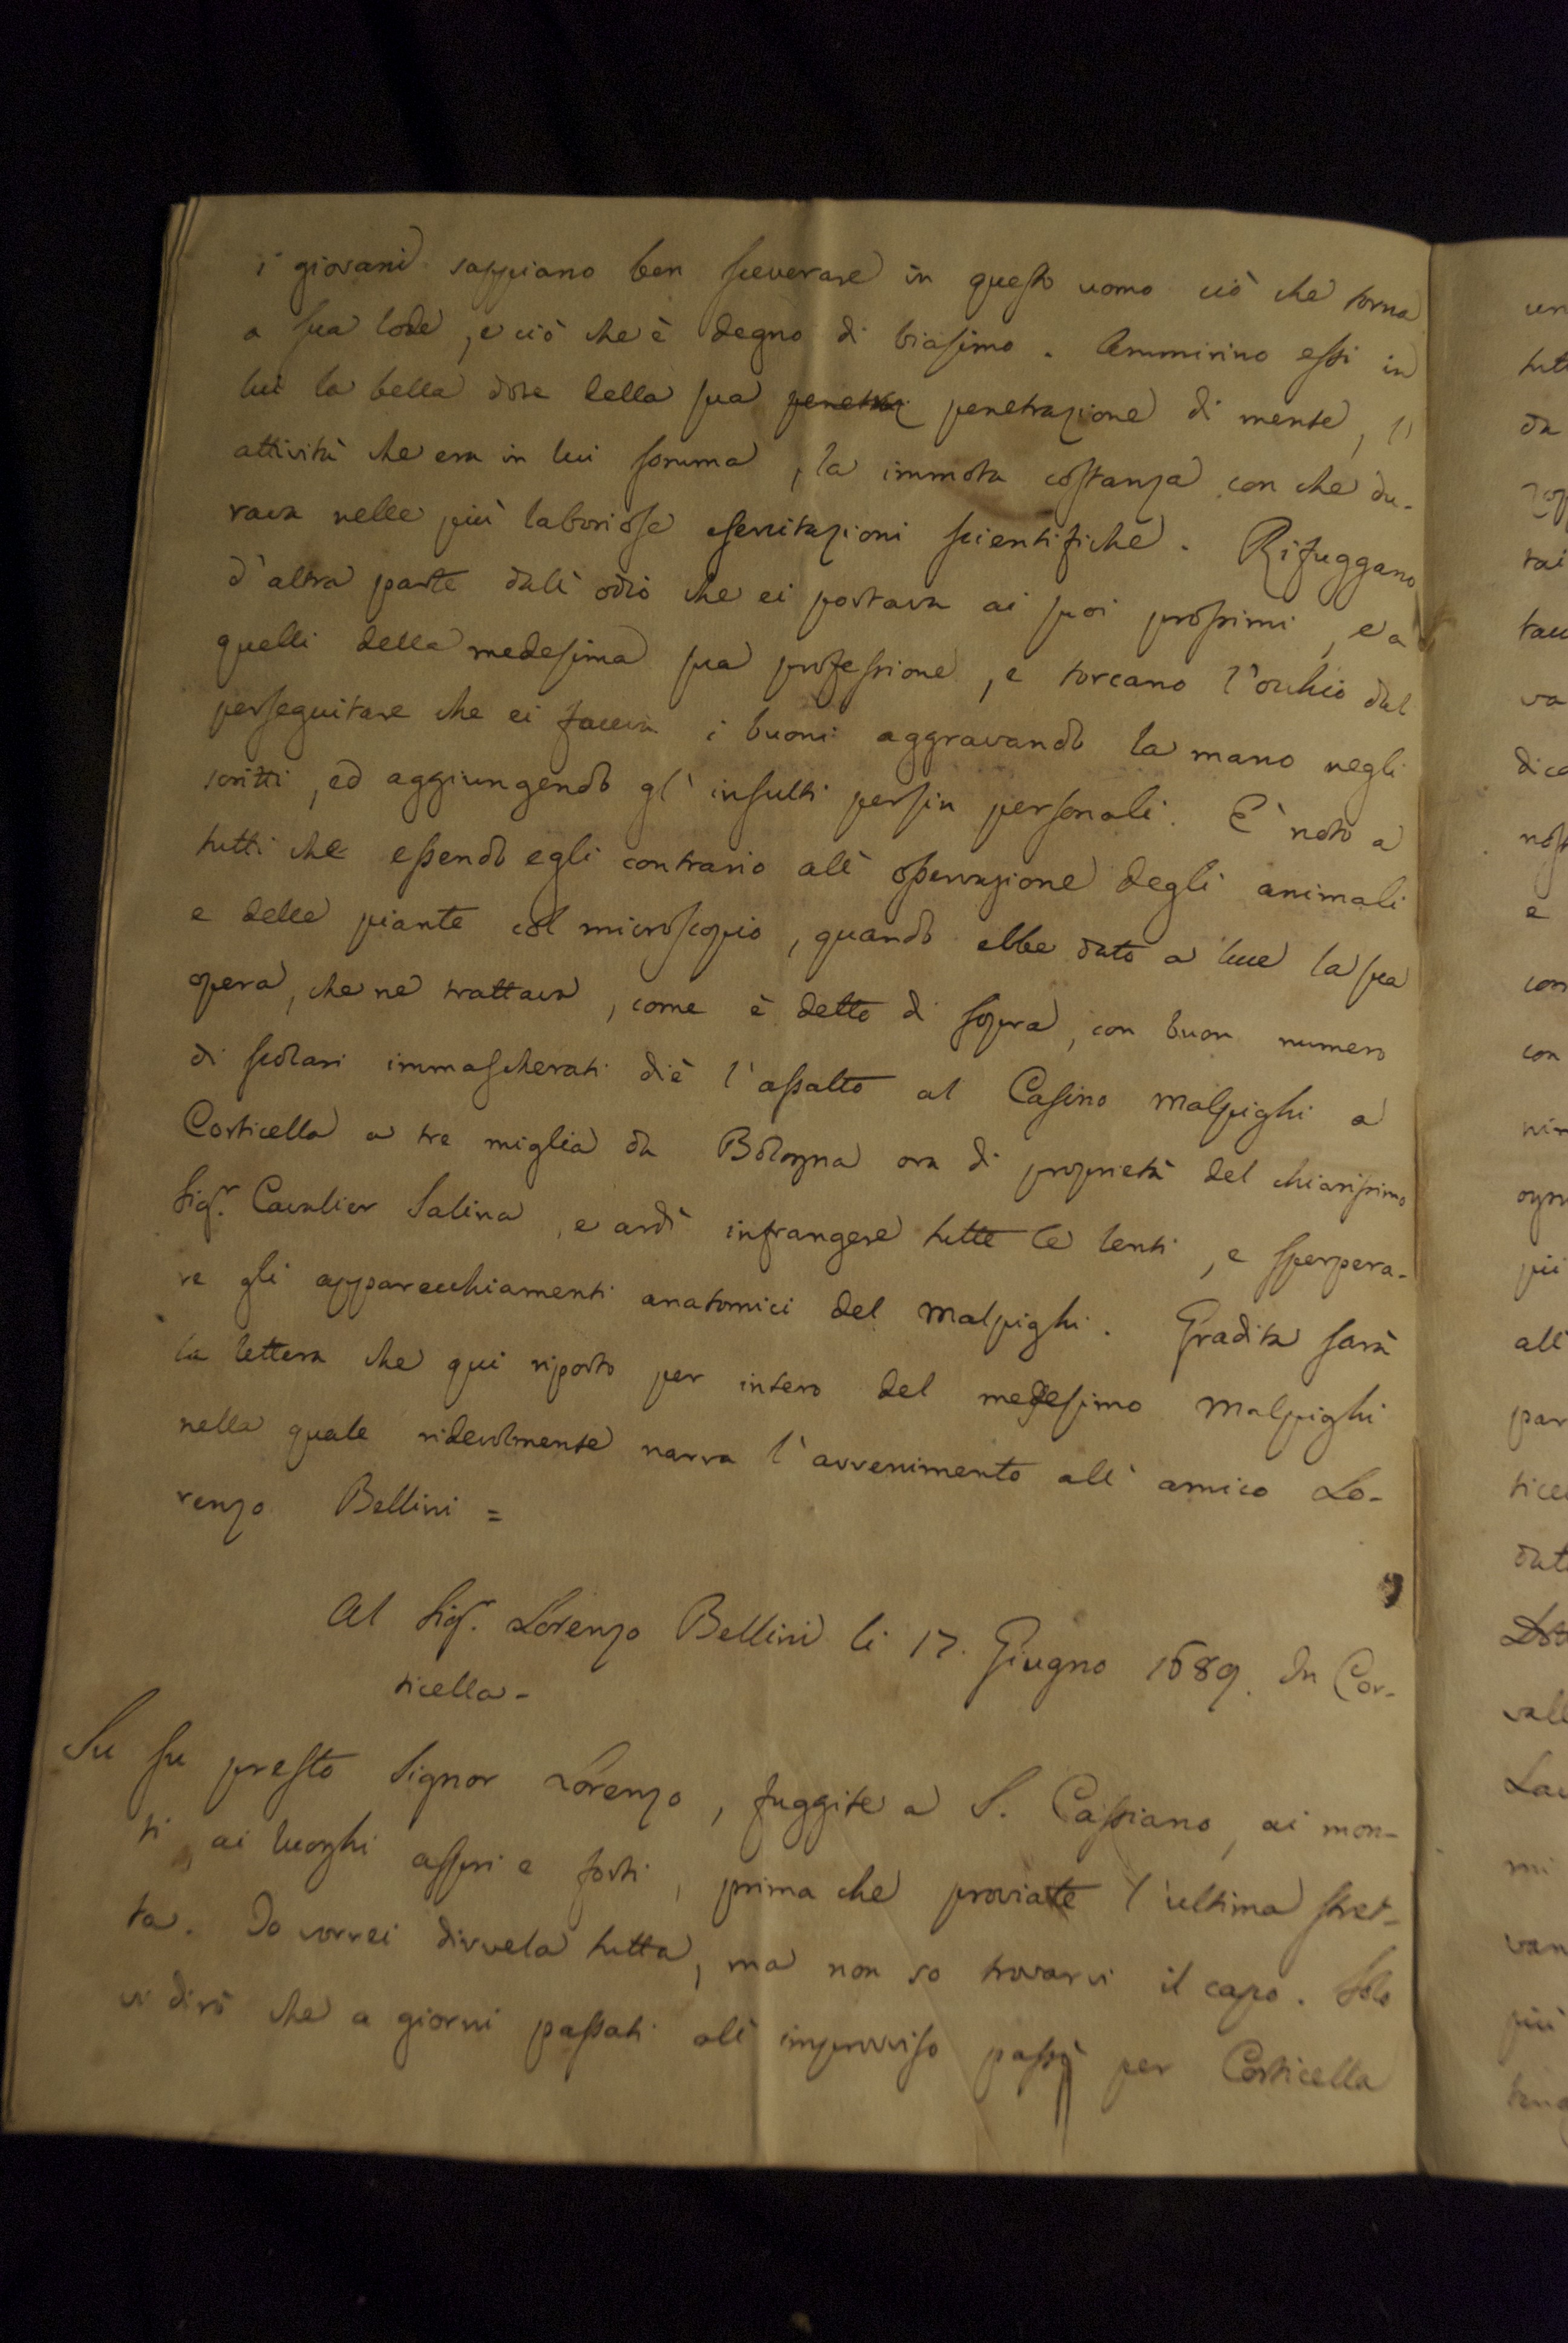 i giovani sappiano ben sceverare in questo uomo ciò che torna
a sua lode, e ciò che è degno di biasimo. Ammirino essi in
lui la bella dote della sua penetrazione di mente, l'
attività che era in lui somma, la immota costanza con che du-
rava nelle più laboriose esercitazioni scientifiche. Rifuggano
d'altra parte dall'odio che ei portava ai suoi prossimi, e a
quelli della medesima sua professione, e torcano l'occhio dal
perseguitare che ei faceva i buoni aggravando la mano negli
scritti, ed aggiungendo gl'insulti persin personali. È noto a
tutti che essendo egli contrario all'osservazione degli animali
e delle piante col microscopio, quando ebbe dato a luce la sua
opera, che ne trattava, come è detto di sopra, con buon numero
di scolari immascherati diè l'assalto al Casino Malpighi a
Corticella a tre miglia da Bologna ora di proprietà del chiarissimo
Sigr. Cavalier Salina, e ardì infrangere tutte le lenti, e sperpera-
re gli apparecchiamenti anatomici del Malpighi. Gradita sarà
la lettera che qui riporto per intero del medesimo Malpighi
nella quale ridevolmente narra l'avvenimento all'amico Lo-
renzo Bellini =
Al Sigr. Lorenzo Bellini li 17. Giugno 1689. In Cor-
ticella -
Su su presto Signor Lorenzo, fuggite a S. Cassiano, ai mon-
ti, ai luoghi aspri e forti, prima che proviate l'ultima stret-
ta. Io vorrei dirvela tutta, ma non so trovarvi il capo. Solo
vi dirò che a giorni passati all'improvviso passò per Corticella